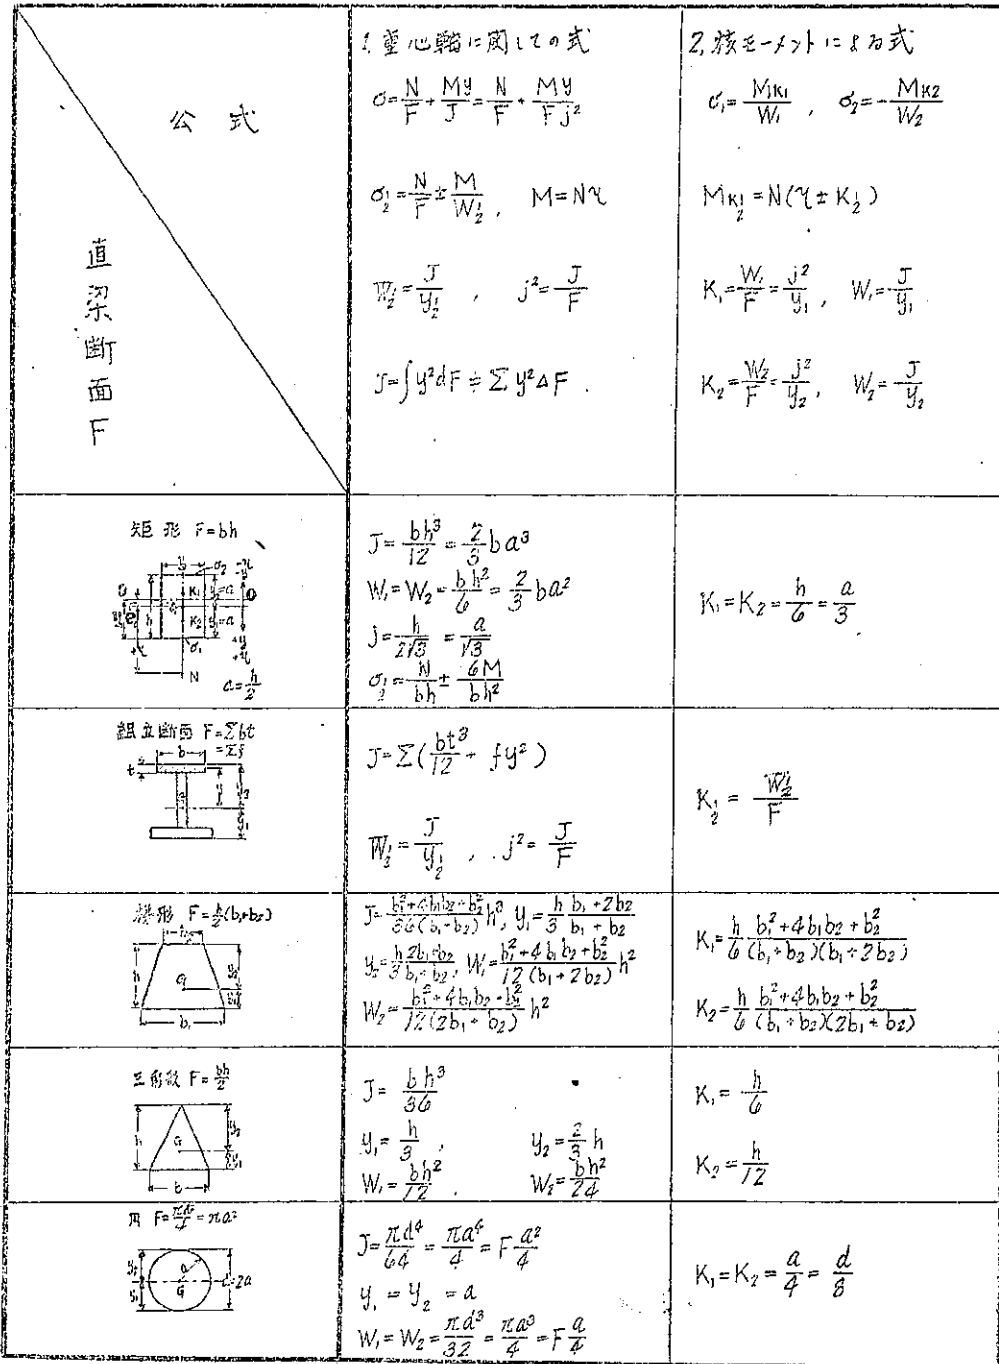 公式
直梁断面F
1. 重心軸に関しての式
σ=N/F+My/J=N/F+My/Fj²
σ½=N/F±M/W½, M=Nη
W½=J/y½, j²=J/F
J=∫y²dF≑Σy²ΔF.
2. 核モーメントによる式
σ₁=Mκ₁/W₁, σ₂=-Mκ₂/W₂
Mκ½=N(η±K½)
K₁=W₁/F=j²/y₁, W₁=J/y₁
K₂=W₂/F=j²/y₂, W₂=J/y₂
矩形 F=bh
b σ₂
K₁ =a
h K₂ =a
σ₁
N a=h/2
J=bh³/12=2/3ba³
W₁=W₂=bh²/6=2/3ba²
j=h/2√3=a/√3
σ½=N/bh±6M/bh²
K₁=K₂=h/6=a/3
組立断面 F=Σbt
=Σf
b
t y y₂
y₁
J=Σ(bt³/12+fy²)
W½=J/y½, j²=J/F
K½=W½/F
梯形 F=h/2(b₁+b₂)
b₂
h G y₂
y₁
b₁
J=b₁²+4b₁b₂+b₂²/36(b₁+b₂)h³, y₁=h/3 b₁+2b₂/b₁+b₂
y₂=h/3 2b₁+b₂/b₁+b₂, W₁=b₁²+4b₁b₂+b₂²/12(b₁+2b₂)h²
W₂=b₁²+4b₁b₂+b₂²/12(2b₁+b₂)h²
K₁=h/6 b₁²+4b₁b₂+b₂²/(b₁+b₂)(b₁+2b₂)
K₂=h/6 b₁²+4b₁b₂+b₂²/(b₁+b₂)(2b₁+b₂)
三角形 F=bh/2
h G y₂
y₁
b
J=bh³/36
y₁=h/3, y₂=2/3h
W₁=bh²/12. W₂=bh²/24
K₁=h/6
K₂=h/12
円 F=πd²/4=πa²
y₂ a
y₁ G d=2a
J=πd⁴/64=πa⁴/4=Fa²/4
y₁=y₂=a
W₁=W₂=πd³/32=πa³/4=Fa/4
K₁=K₂=a/4=d/8